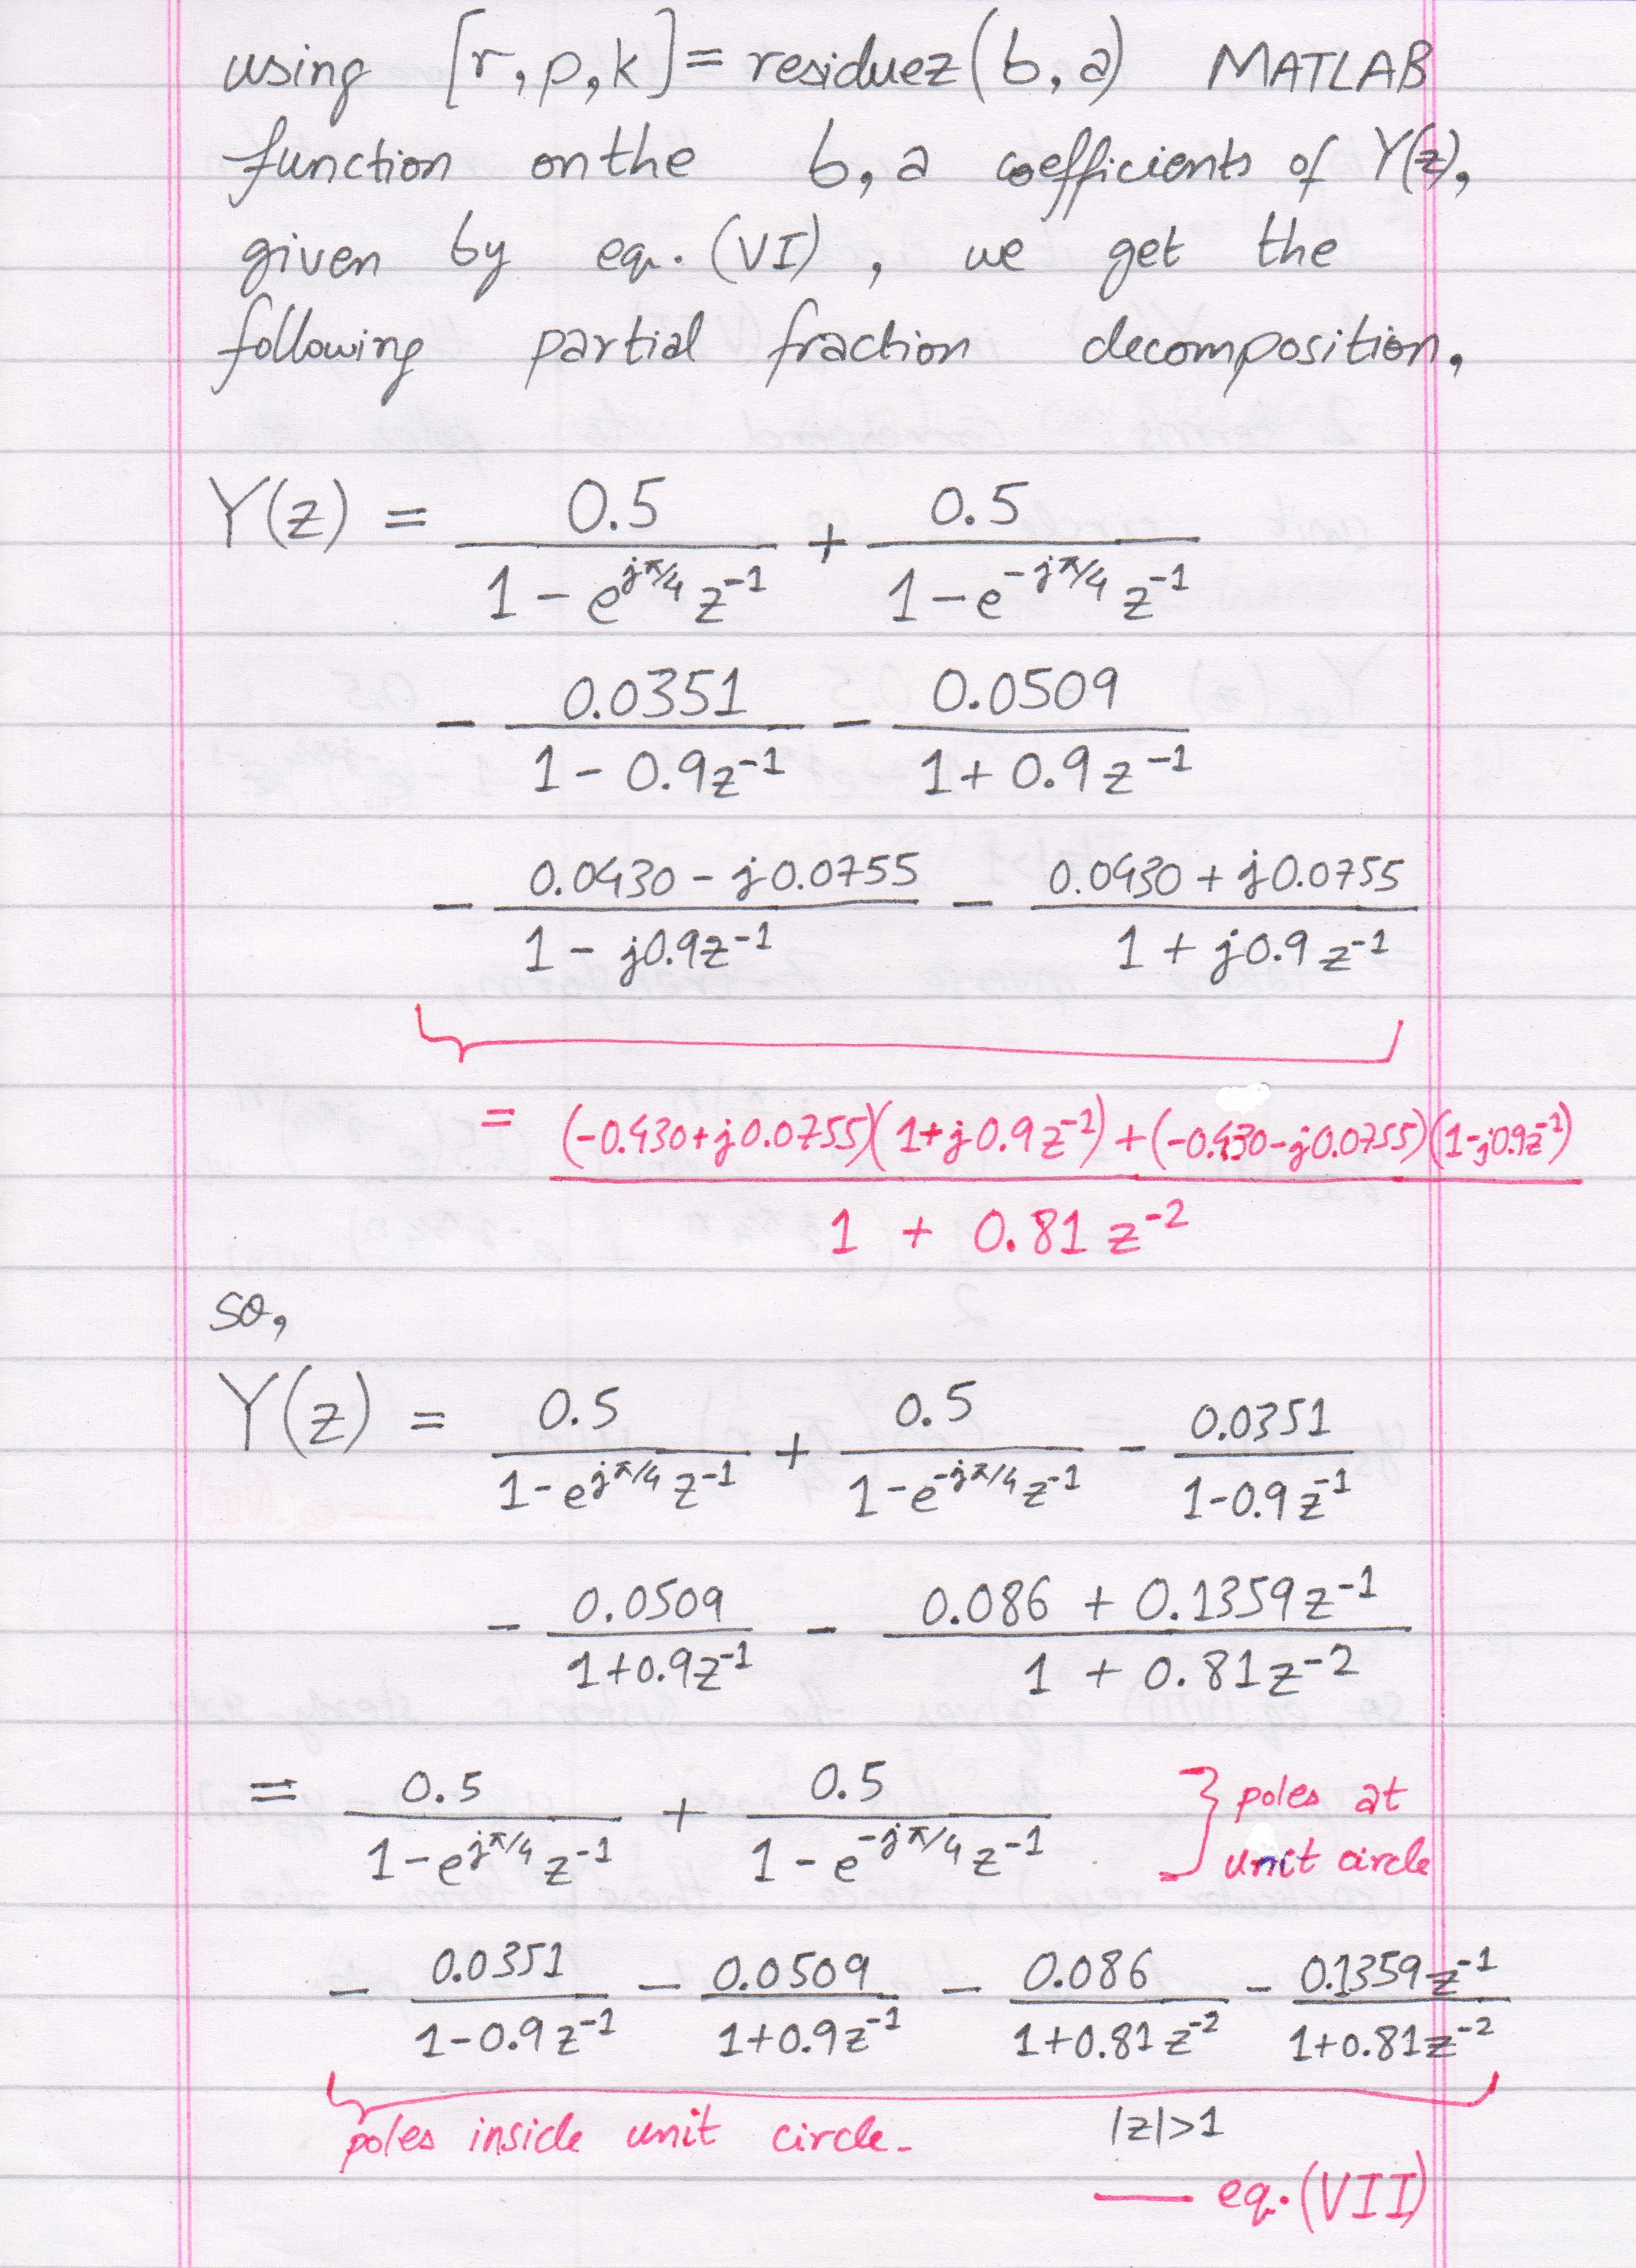 using [r,p,k] = residuez(b,a) MATLAB
function on the b, a coefficients of Y(z),
given by eq. (VI), we get the
following partial fraction decomposition,
Y(z) = 0.5/(1 - e^{jπ/4} z^{-1}) + 0.5/(1 - e^{-jπ/4} z^{-1})
- 0.0351/(1 - 0.9z^{-1}) - 0.0509/(1 + 0.9z^{-1})
- (0.0430 - j0.0755)/(1 - j0.9z^{-1}) - (0.0430 + j0.0755)/(1 + j0.9z^{-1})
= ((-0.430+j0.0755)(1+j0.9z^{-1}) + (-0.430-j0.0755)(1-j0.9z^{-1}))/(1 + 0.81z^{-2})
so,
Y(z) = 0.5/(1 - e^{jπ/4} z^{-1}) + 0.5/(1 - e^{-jπ/4} z^{-1}) - 0.0351/(1 - 0.9z^{-1})
- 0.0509/(1 + 0.9z^{-1}) - (0.086 + 0.1359z^{-1})/(1 + 0.81z^{-2})
= 0.5/(1 - e^{jπ/4} z^{-1}) + 0.5/(1 - e^{-jπ/4} z^{-1}) } poles at
unit circle
- 0.0351/(1 - 0.9z^{-1}) - 0.0509/(1 + 0.9z^{-1}) - 0.086/(1 + 0.81z^{-2}) - 0.1359z^{-1}/(1 + 0.81z^{-2})
poles inside unit circle. |z|>1
— eq.(VII)